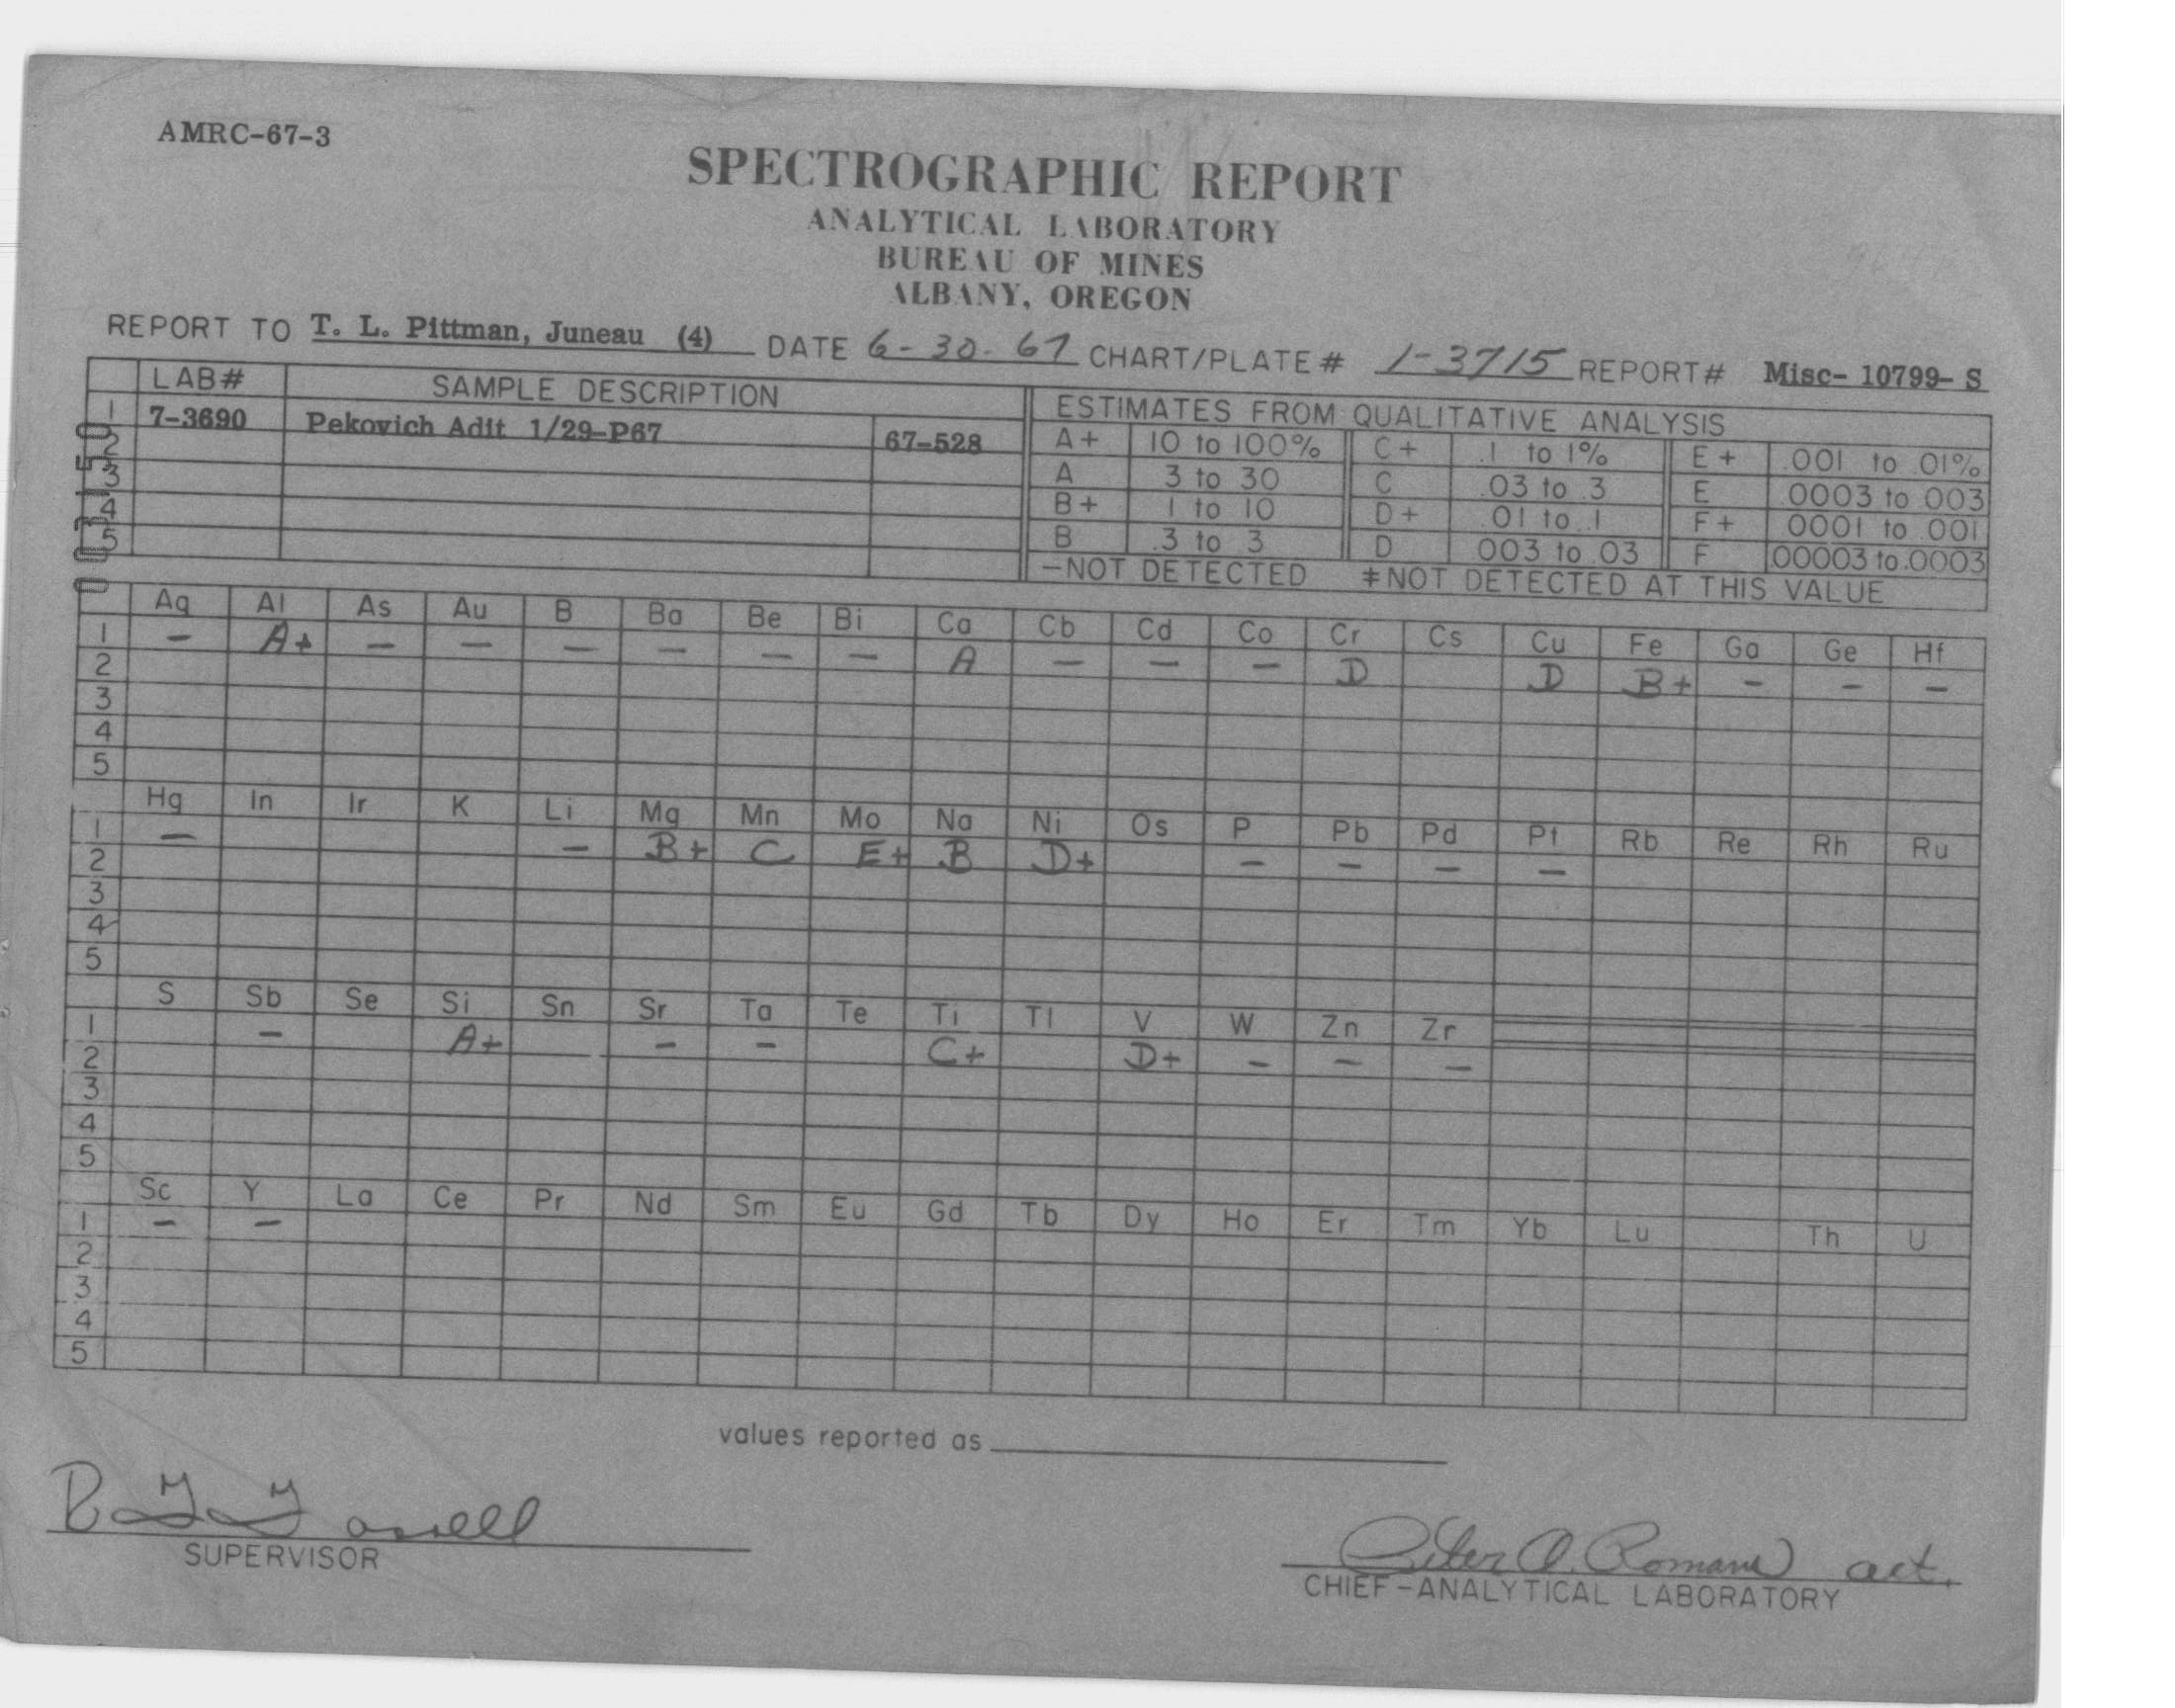 AMRC-67-3
SPECTROGRAPHIC REPORT
ANALYTICAL LABORATORY
BUREAU OF MINES
ALBANY, OREGON
REPORT TO T. L. Pittman, Juneau (4) DATE 6-30-67 CHART/PLATE# 1-3715 REPORT# Misc- 10799- S
LAB# SAMPLE DESCRIPTION
1 7-3690 Pekovich Adit 1/29-P67 67-528
2
3
4
5
ESTIMATES FROM QUALITATIVE ANALYSIS
A+ 10 to 100% C+ .1 to 1% E+ .001 to .01%
A 3 to 30 C .03 to .3 E .0003 to 003
B+ 1 to 10 D+ .01 to .1 F+ 0001 to .001
B .3 to 3 D 003 to .03 F .00003 to .0003
-NOT DETECTED ≠NOT DETECTED AT THIS VALUE
Ag Al As Au B Ba Be Bi Ca Cb Cd Co Cr Cs Cu Fe Ga Ge Hf
1 - A+ - - - - - - A - - - D D B+ - - -
2
3
4
5
Hg In Ir K Li Mg Mn Mo Na Ni Os P Pb Pd Pt Rb Re Rh Ru
1 - - B+ C E+ B D+ - - - -
2
3
4
5
S Sb Se Si Sn Sr Ta Te Ti Tl V W Zn Zr
1 - A+ - - - C+ D+ - - -
2
3
4
5
Sc Y La Ce Pr Nd Sm Eu Gd Tb Dy Ho Er Tm Yb Lu Th U
1 - -
2
3
4
5
values reported as
SUPERVISOR
Peter A. Romans act.
CHIEF-ANALYTICAL LABORATORY